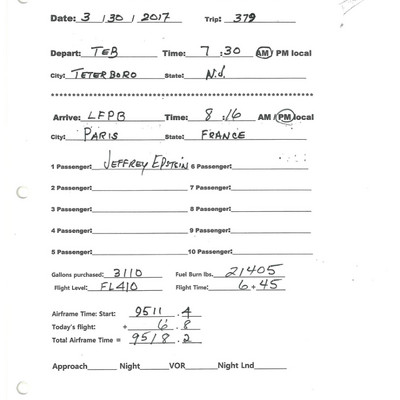 Date: 3 / 30 / 2017 Trip: 379
Depart: TEB Time: 7 : 30 AM / PM local
City: TETERBORO State: N.J.
Arrive: LFPB Time: 8 : 16 AM / PM local
City: PARIS State: FRANCE
1 Passenger: JEFFREY EPSTEIN 6 Passenger:
2 Passenger: 7 Passenger:
3 Passenger: 8 Passenger:
4 Passenger: 9 Passenger:
5 Passenger: 10 Passenger:
Gallons purchased: 3110 Fuel Burn lbs. 21405
Flight Level: FL410 Flight Time: 6 + 45
Airframe Time: Start: 9511 . 4
Today's flight: + 6 . 8
Total Airframe Time = 9518 . 2
Approach Night VOR Night Lnd